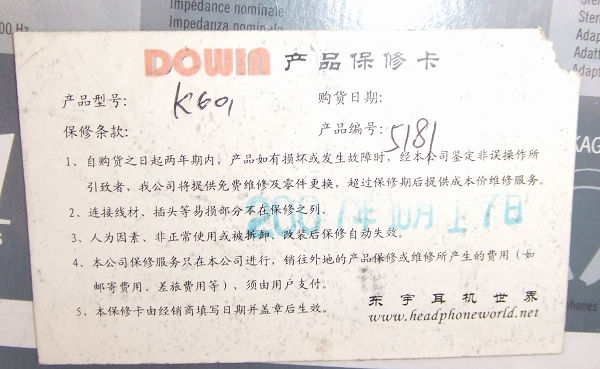 Impédance nominale
Impedanza nominale
DOWIN 产品保修卡
产品型号: K601
购货日期:
保修条款:
产品编号: 5181
1、自购货之日起两年期内，产品如有损坏或发生故障时，经本公司鉴定非误操作所
引致者，我公司将提供免费维修及零件更换，超过保修期后提供成本价维修服务。
2、连接线材、插头等易损部分不在保修之列。
3、人为因素、非正常使用或被拆卸、改装后保修自动失效。
4、本公司保修服务只在本公司进行，销往外地的产品保修或维修所产生的费用（如
邮寄费用、差旅费用等），须由用户支付。
5、本保修卡由经销商填写日期并盖章后生效。
东宇耳机世界
www.headphoneworld.net